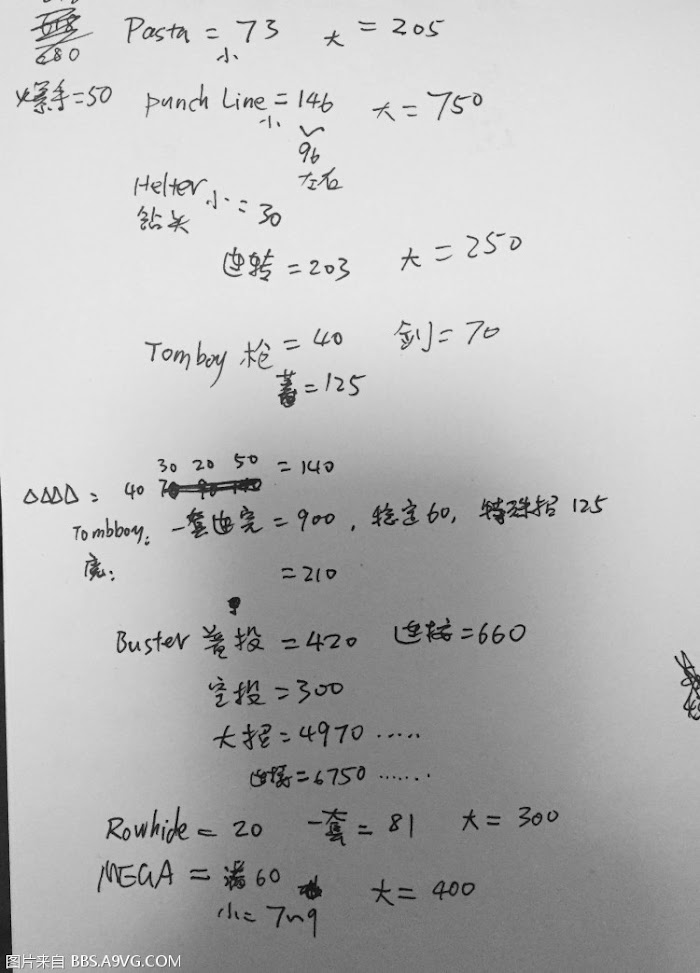 680 Pasta = 73 大 = 205
小
爆手=50 punch Line = 146 大 = 750
小
96
左右
Helter 小 = 30
钻头
连转 = 203 大 = 250
Tomboy 枪 = 40 剑 = 70
蓄 = 125
30 20 50 = 140
△△△△ : 40
Tombboy: 一套连完 = 900 , 稳定60, 特殊招 125
= 210
Buster 普投 = 420 连接 = 660
空投 = 300
大招 = 4970 .....
连接 = 6750 ......
Rowhide = 20 一套 = 81 大 = 300
MEGA = 满60 大 = 400
小 = 7~9
图片来自 BBS.A9VG.COM